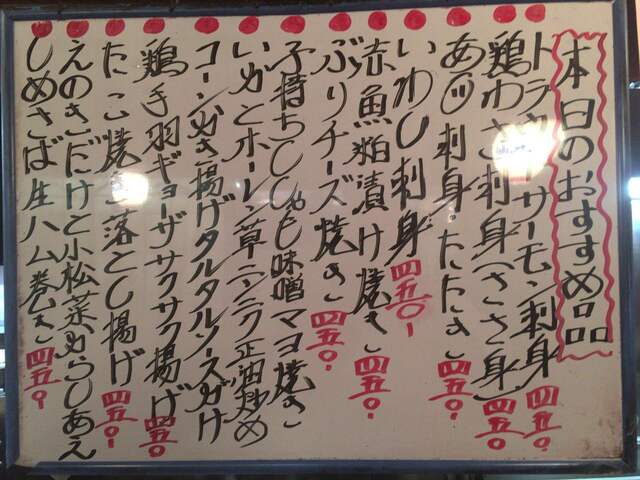 本日のおすすめ品
トラウトサーモン刺身 四五〇-
鶏わさ刺身(ささ身) 四五〇-
あじ刺身・たたき 四五〇-
いわし刺身 四五〇-
赤魚粕漬け焼き 四五〇-
ぶりチーズ焼き 四五〇-
子持ちししゃも味噌マヨ焼き
いかとホーレン草ニンニク正油炒め
コーンかき揚げタルタルソースがけ
鶏手羽ギョーザサクサク揚げ 四五〇
たこ焼き落とし揚げ 四五〇-
えのきだけと小松菜からしあえ
しめさば生ハム巻き 四五〇-